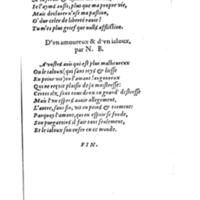 Ie l'ayme aussi, plus que ma propre vie,
Mais declarer n'ose ma passion,
O dur celer de liberté rauie!
Tu m'es plus grief que nulle affliction.
D'vn amoureux & d'vn ialoux,
par N. B.
A vostre auis qui est plus malheureux
Ou le ialoux qui sans repos & liesse
En peine vit ou l'amant langoureux
Qui ne reçoit plaisir de sa maistresse?
Certes dis, sont tous deux en grand' destresse
Mais l'vn espere auoir allegement,
L'autre, sans fin, vit en peine & torment:
Parquoy l'amant, qui en espoir se fonde,
Son purgatoire il fait tout seulement,
Et le ialoux son enfer en ce monde.
FIN.